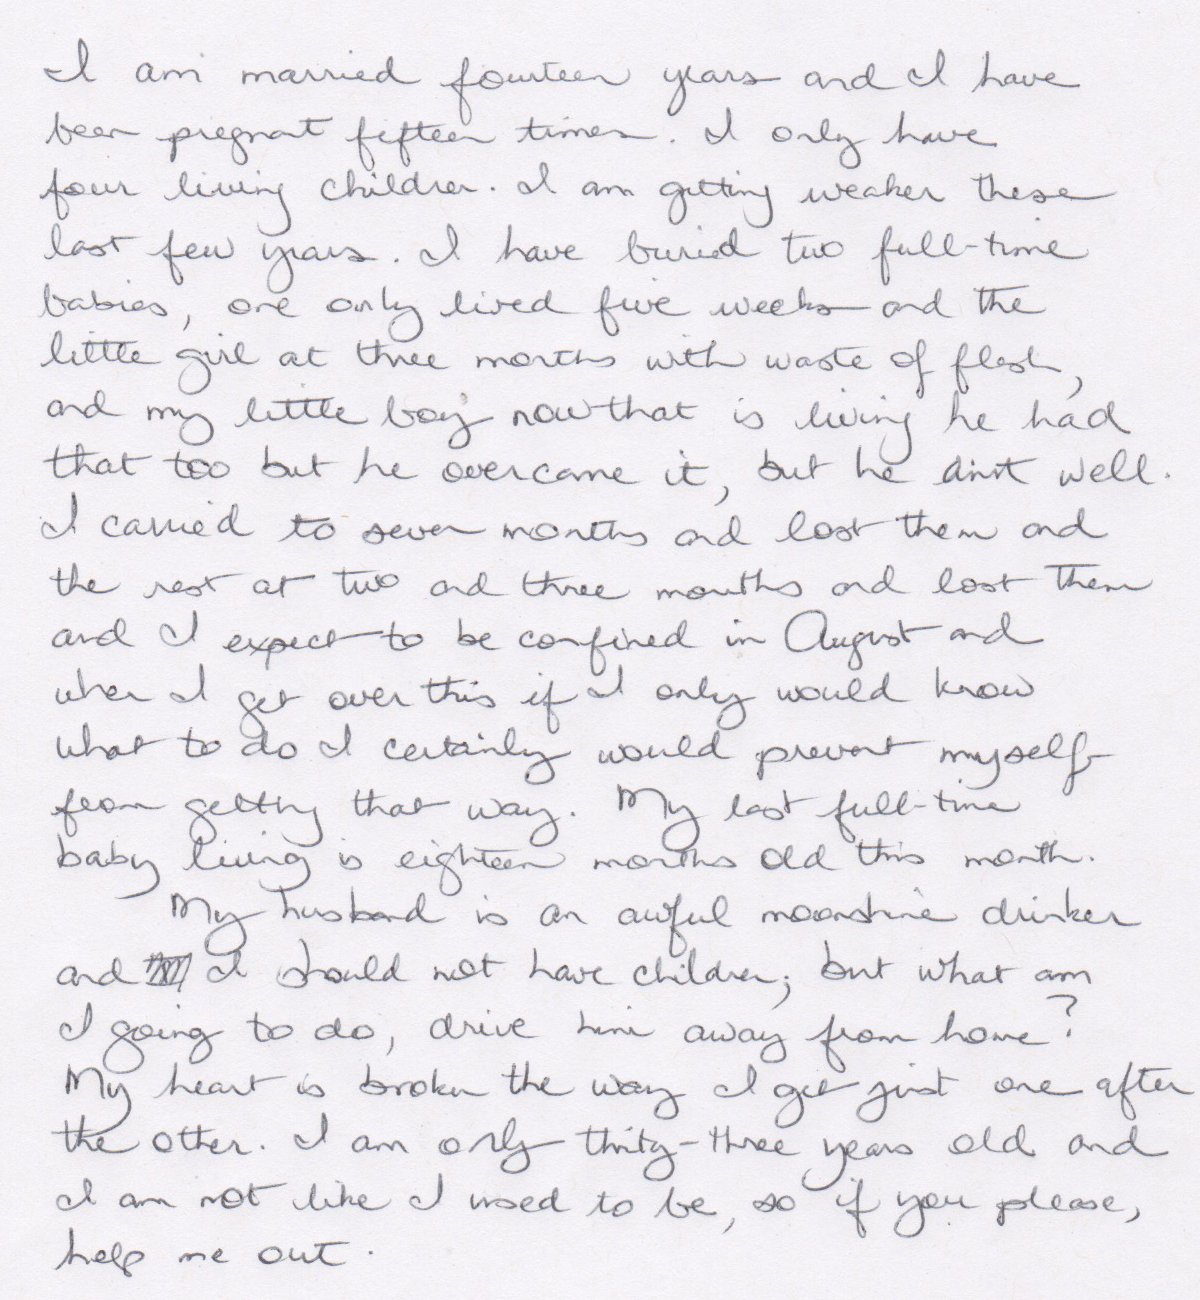 I am married fourteen years and I have
been pregnant fifteen times. I only have
four living children. I am getting weaker these
last few years. I have buried two full-time
babies, one only lived five weeks and the
little girl at three months with waste of flesh,
and my little boy now that is living he had
that too but he overcame it, but he ain't well.
I carried to seven months and lost them and
the rest at two and three months and lost them
and I expect to be confined in August and
when I get over this if I only would know
what to do I certainly would prevent myself
from getting that way. My last full-time
baby living is eighteen months old this month.
My husband is an awful moonshine drinker
and I should not have children; but what am
I going to do, drive him away from home?
My heart is broken the way I get just one after
the other. I am only thirty-three years old and
I am not like I used to be, so if you please,
help me out.